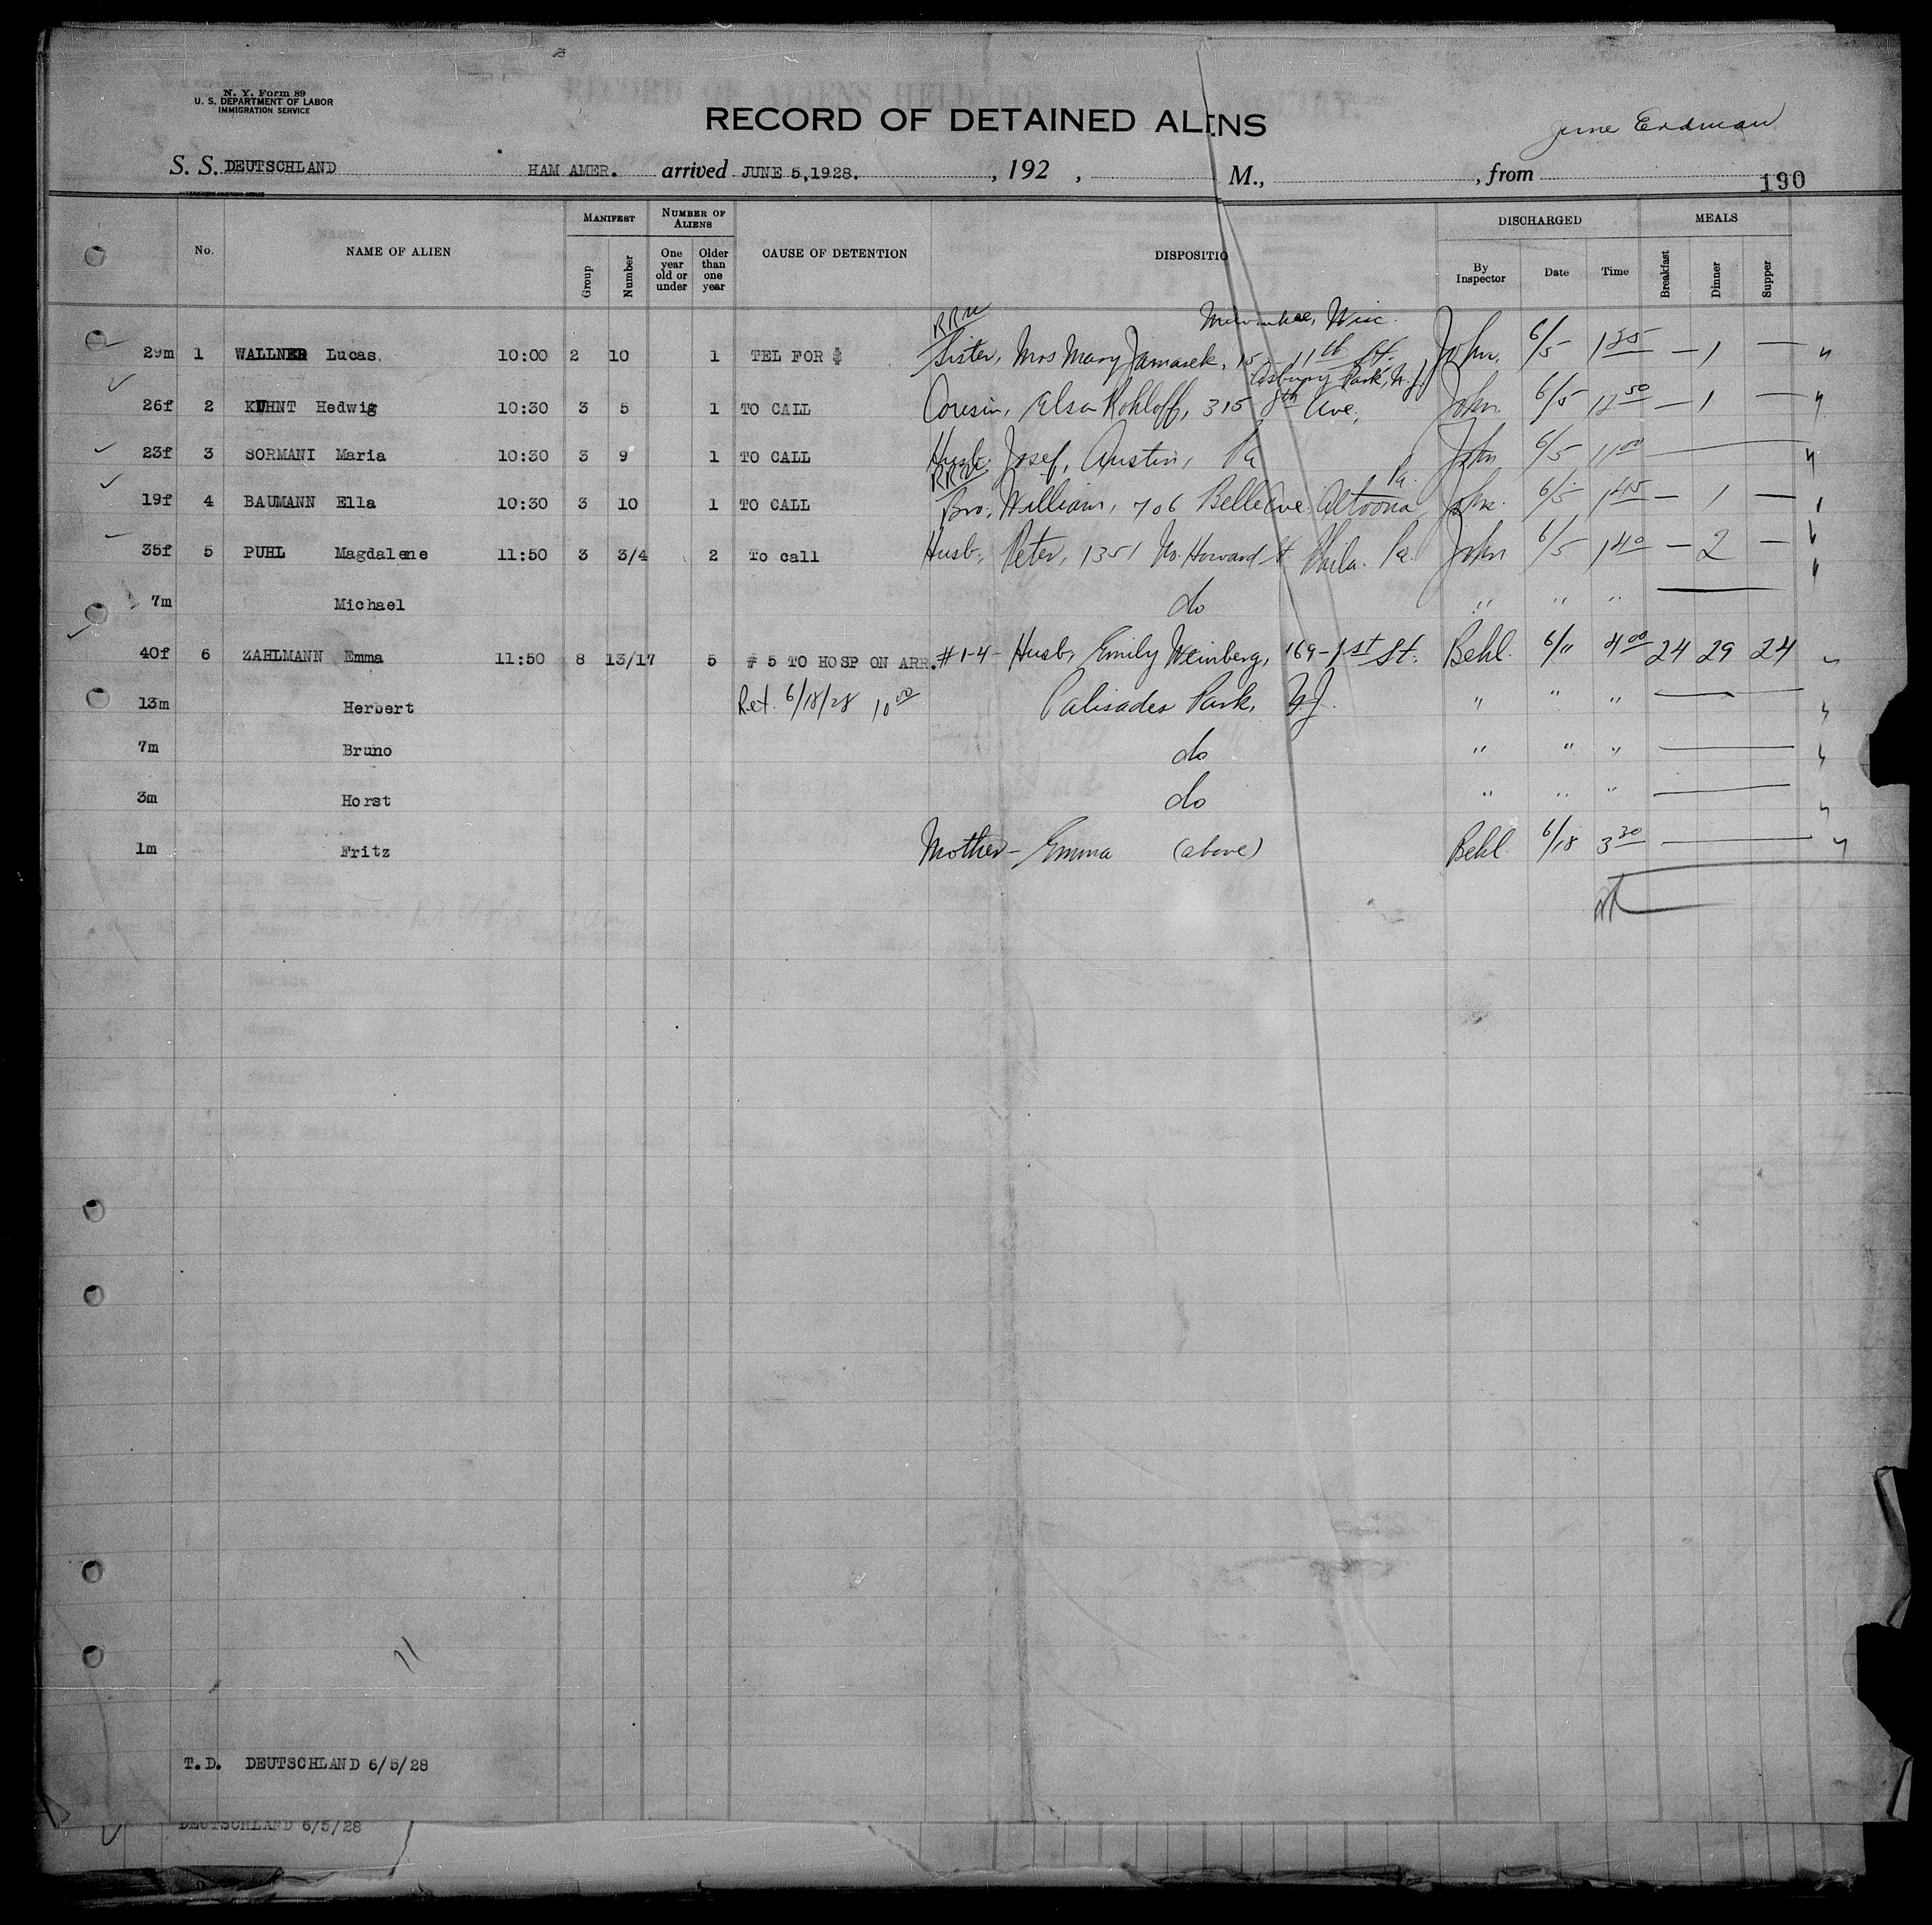 N. Y. Form 89
U. S. DEPARTMENT OF LABOR
IMMIGRATION SERVICE
RECORD OF DETAINED ALIENS
Erdman
S. S. DEUTSCHLAND HAM AMER. arrived JUNE 5, 1928. , 192 , M., , from
190
No. NAME OF ALIEN MANIFEST Group Number NUMBER OF ALIENS One year old or under Older than one year CAUSE OF DETENTION DISPOSITIO DISCHARGED By Inspector Date Time MEALS Breakfast Dinner Supper
Milwaukee, Wisc.
29m 1 WALLNER Lucas. 10:00 2 10 1 TEL FOR $ Sister, Mrs Mary 11th St. John. 6/5 1 35 — 1 —
Asbury Park, N.J.
26f 2 KUHNT Hedwig 10:30 3 5 1 TO CALL Cousin, Elsa Rohloff, 315 8th Ave. John. 6/5 12 50 — 1 —
23f 3 SORMANI Maria 10:30 3 9 1 TO CALL Husb. Josef, Austin, Pa John 6/5 11 00
Pa.
19f 4 BAUMANN Ella 10:30 3 10 1 TO CALL Bro. William, 706 Belle Ave. Altoona, John. 6/5 1 45 — 1 —
35f 5 PUHL Magdalene 11:50 3 3/4 2 To call Husb. Peter, 1351 No. Howard St. Phila. Pa. John 6/5 1 40 — 2 —
7m Michael do " " "
40f 6 ZAHLMANN Emma 11:50 8 13/17 5 # 5 TO HOSP ON ARR. #1-4- Husb, Emily Weinberg, 169-1st St. Behl. 6/11 4 00 24 29 24
13m Herbert Ret. 6/18/28 10 00 Palisades Park, N.J. " " "
7m Bruno do " " "
3m Horst do " " "
1m Fritz Mother- Emma (above) Behl. 6/18 3 30
11
T.D. DEUTSCHLAND 6/5/28
DEUTSCHLAND 6/5/28